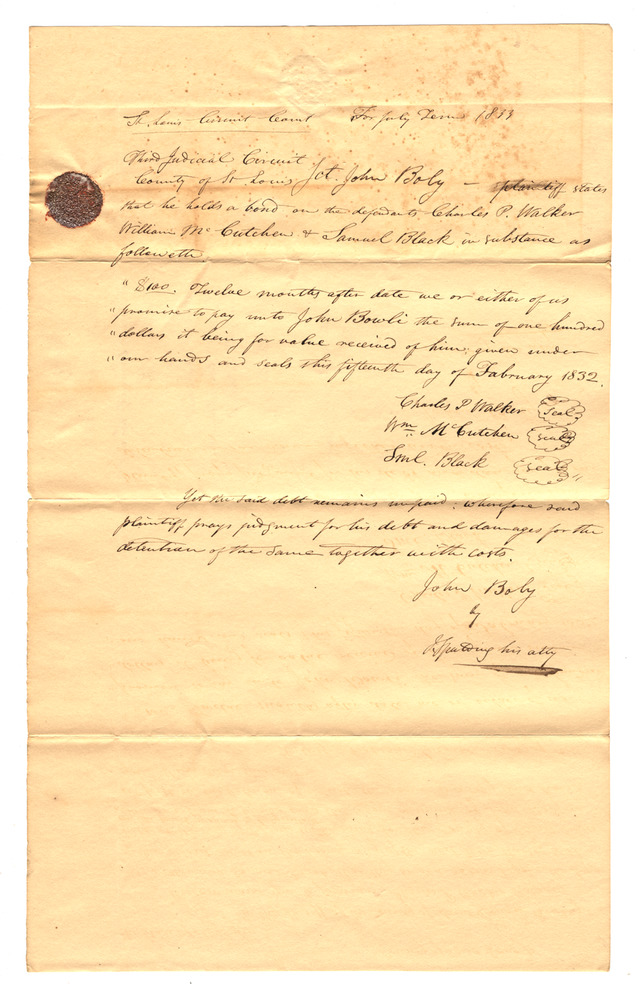 St. Louis Circuit Court For July Term 1833
Third Judicial Circuit
County of St Louis Sct. John Boly — plaintiff states
that he holds a bond on the defendants Charles P. Walker
William Mc Cutchen & Samuel Black in substance as
followeth
"$100. Twelve months after date we or either of us
"promise to pay unto John Bowli the sum of one hundred
"dollars it being for value received of him: given under
"our hands and seals this fifteenth day of Fabruary 1832.
Charles P Walker Seal
Wm. McCutchen Seal
Sml. Black Seal"
Yet the said debt remains unpaid: wherefore said
plaintiff prays judgment for his debt and damages for the
detention of the same together with costs.
John Boly
by
J Spalding his atty